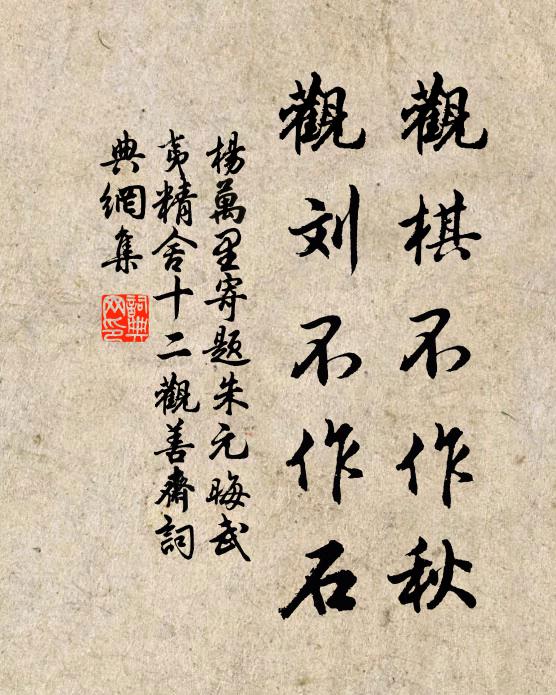 觀棋不作秋
觀刘不作石
楊萬里寄題朱元晦武
夷精舍十二觀善齋詞
典網集
詞典网印